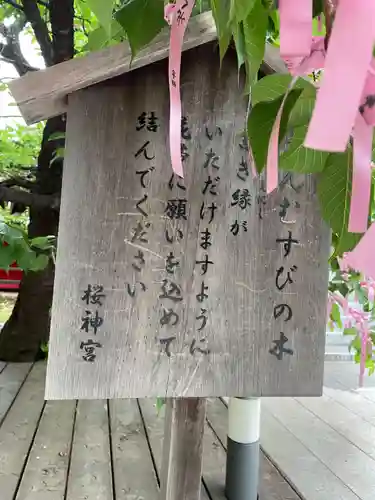 んむすびの木
き縁が
いただけますように
帯に願いを込めて
結んでください
桜神宮